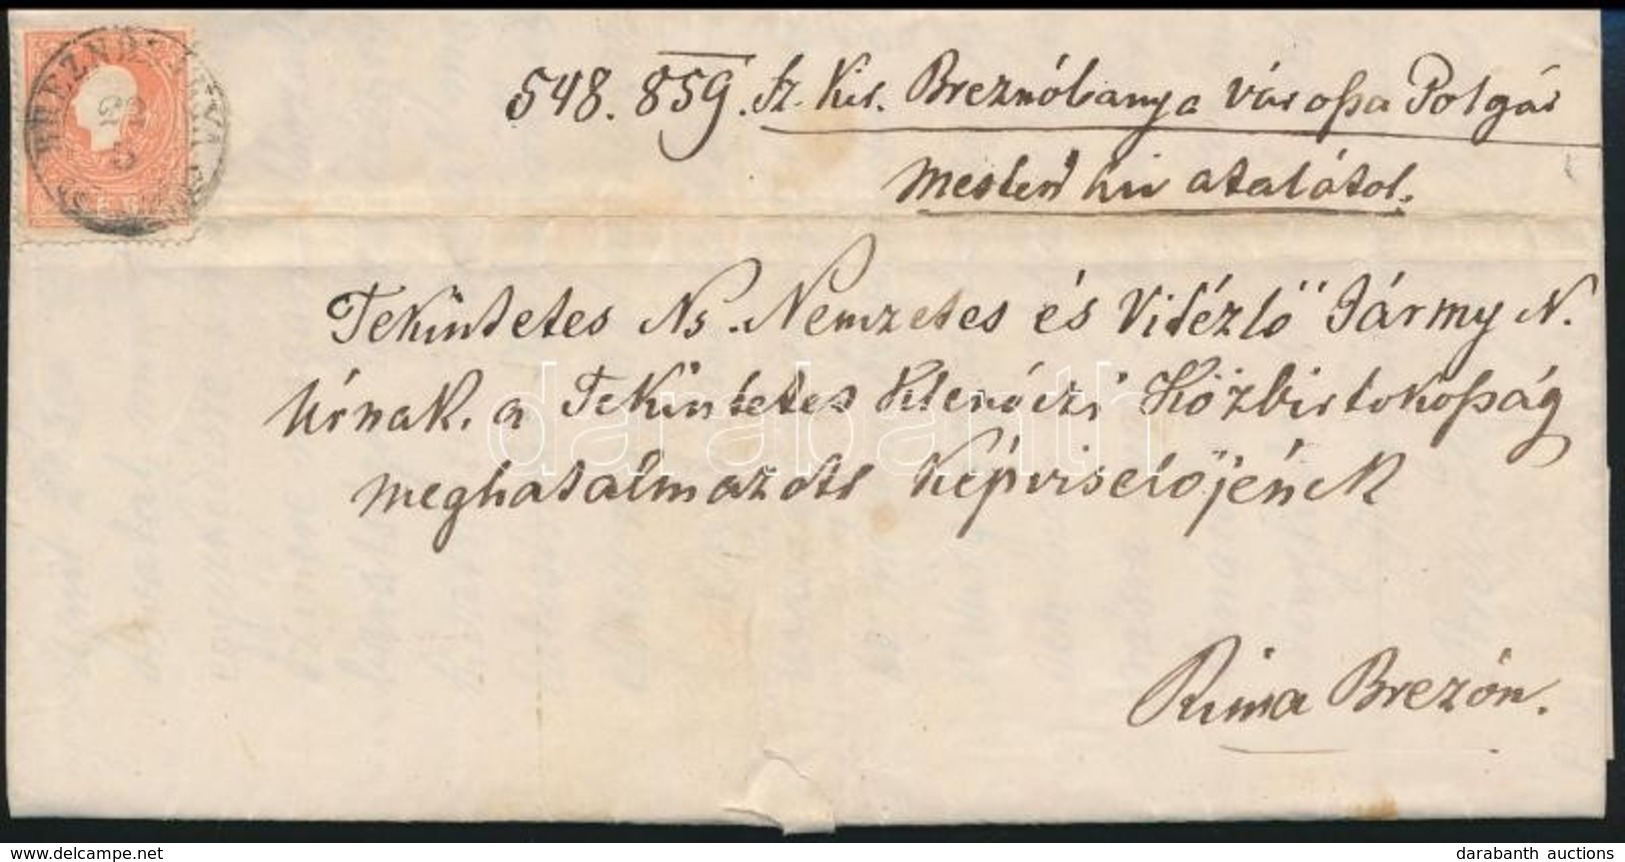 548. 859. Sz. Kir. Breznóbanya város̈sa Polgár
mesteri hiv atalától.
Tekintetes Ns. Nemzetes és Vitézlő Jármy N.
Úrnak. a Tekintetes Klenóczi Közbirtokosság
meghatalmazott képviselőjének
Rima Brezón.
darabanth
delcampe.net
darabanth auctions